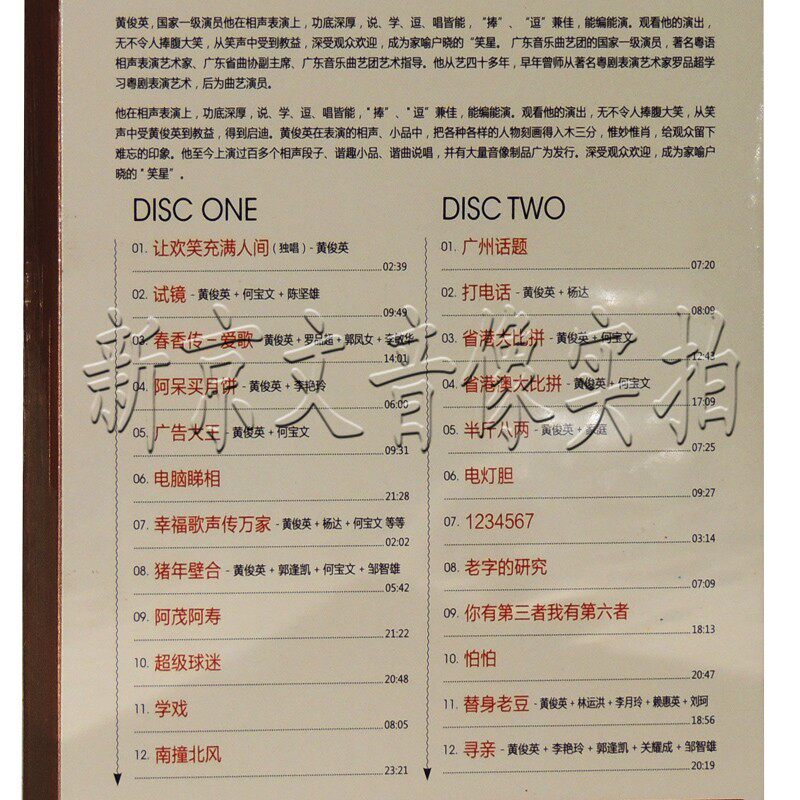 黄俊英，国家一级演员他在相声表演上，功底深厚，说、学、逗、唱皆能，“捧”、“逗”兼佳，能编能演。观看他的演出，
无不令人捧腹大笑，从笑声中受到教益，深受观众欢迎，成为家喻户晓的“笑星。 广东音乐曲艺团的国家一级演员，著名粤语
相声表演艺术家、广东省曲协副主席、广东音乐曲艺团艺术指导。他从艺四十多年，早年曾师从著名粤剧表演艺术家罗品超学
习粤剧表演艺术，后为曲艺演员。
他在相声表演上，功底深厚，说、学、逗、唱皆能，"捧”、"逗”兼佳，能编能演。观看他的演出，无不令人捧腹大笑，从笑
声中受黄俊英到教益，得到启迪。黄俊英在表演的相声、小品中，把各种各样的人物刻画得入木三分，惟妙惟肖，给观众留下
难忘的印象。他至今上演过百多个相声段子、谐趣小品、谐曲说唱，并有大量音像制品广为发行。深受观众欢迎，成为家喻户
晓的"笑星”。
DISC ONE
01. 让欢笑充满人间（独唱）- 黄俊英
02:39
02. 试镜 - 黄俊英 + 何宝文 + 陈坚雄
09:49
03. 春香传—爱歌 - 黄俊英 + 罗品超 + 郭凤女 + 李敏华
14:01
04. 阿呆买月饼 - 黄俊英 + 李艳玲
06:00
05. 广告大王 - 黄俊英 + 何宝文
09:31
06. 电脑睇相
21:28
07. 幸福歌声传万家 - 黄俊英 + 杨达 + 何宝文 等等
02:02
08. 猪年壁合 - 黄俊英 + 郭逢凯 + 何宝文 + 邹智雄
05:42
09. 阿茂阿寿
21:22
10. 超级球迷
20:48
11. 学戏
08:05
12. 南撞北风
23:21
DISC TWO
01. 广州话题
07:20
02. 打电话 - 黄俊英 + 杨达
08:09
03. 省港大比拼 - 黄俊英 + 何宝文
12:43
04. 省港澳大比拼 - 黄俊英 + 何宝文
17:09
05. 半斤八两 - 黄俊英 + 家庭
07:25
06. 电灯胆
09:27
07. 1234567
03:14
08. 老字的研究
07:09
09. 你有第三者我有第六者
18:13
10. 怕怕
20:47
11. 替身老豆 - 黄俊英 + 林运洪 + 李月玲 + 赖惠英 + 刘珂
18:56
12. 寻亲 - 黄俊英 + 李艳玲 + 郭逢凯 + 关耀成 + 邹智雄
20:19
新京文音像实拍